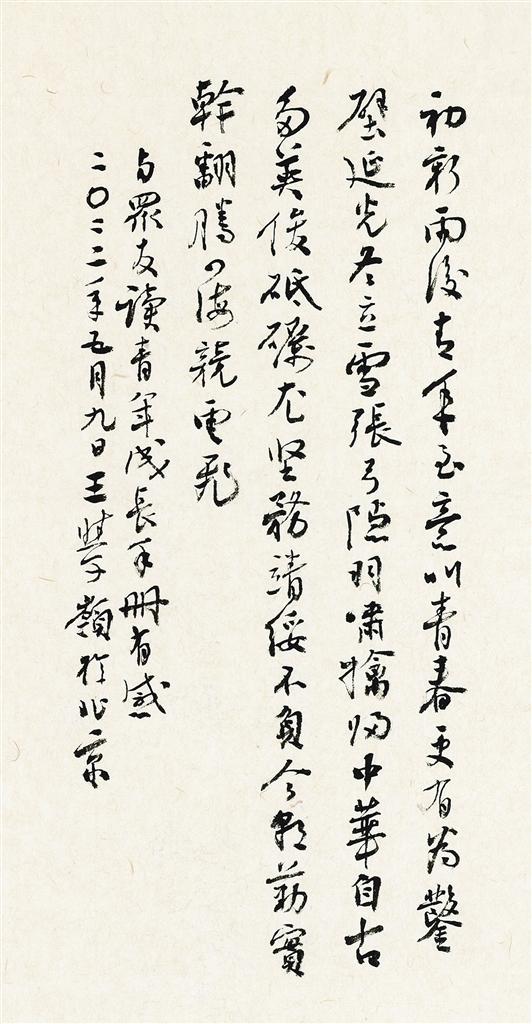 初新雨後青年至意以青春更有為鑿
壁延光冬立雪張弓隱羽嘯擒归中華自古
多英俊砥礪尤坚務靖綏不負今朝勤實
幹翻騰四海競雲飛
与眾友讀青年成長手冊有感
二〇二二年五月九日王學嶺於北京